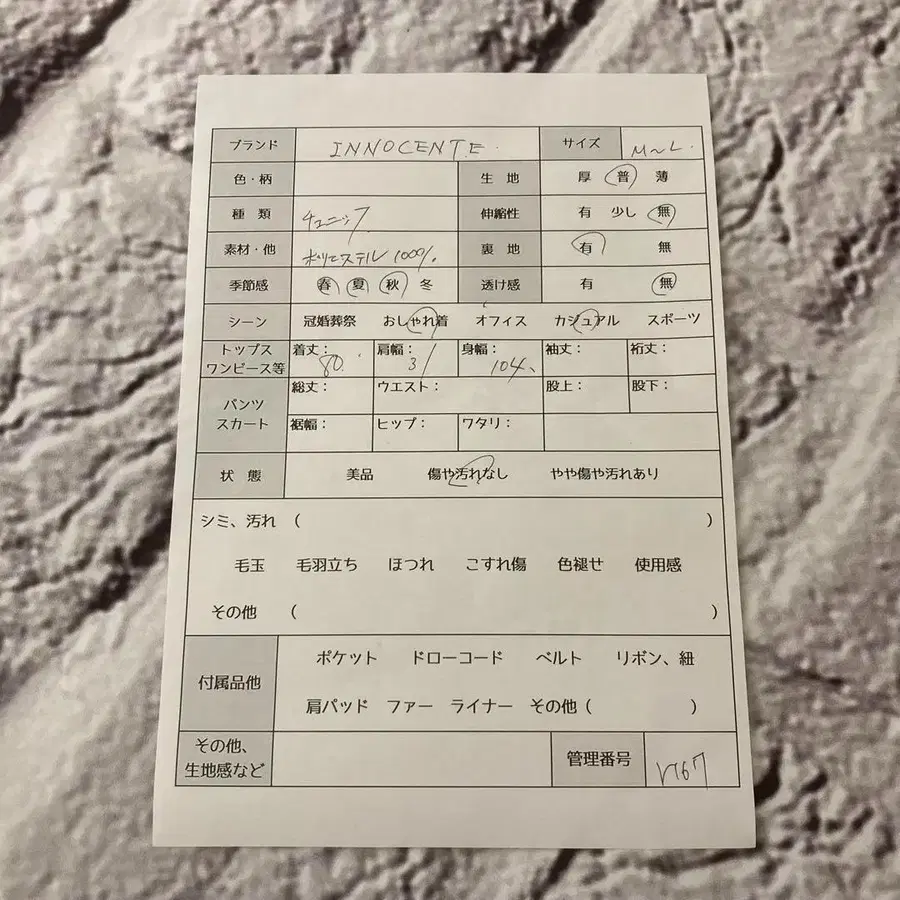 ブランド INNOCENTE サイズ M~L
色・柄 生地 厚 普 薄
種類 チュニック 伸縮性 有 少し 無
素材・他 ポリエステル 100% 裏地 有 無
季節感 春 夏 秋 冬 透け感 有 無
シーン 冠婚葬祭 おしゃれ着 オフィス カジュアル スポーツ
トップス ワンピース等 着丈: 80 肩幅: 31 身幅: 104 袖丈: 裄丈:
パンツ スカート 総丈: ウエスト: 股上: 股下:
裾幅: ヒップ: ワタリ:
状態 美品 傷や汚れなし やや傷や汚れあり
シミ、汚れ ( )
毛玉 毛羽立ち ほつれ こすれ傷 色褪せ 使用感
その他 ( )
付属品他 ポケット ドローコード ベルト リボン、紐
肩パッド ファー ライナー その他 ( )
その他、
生地感など 管理番号